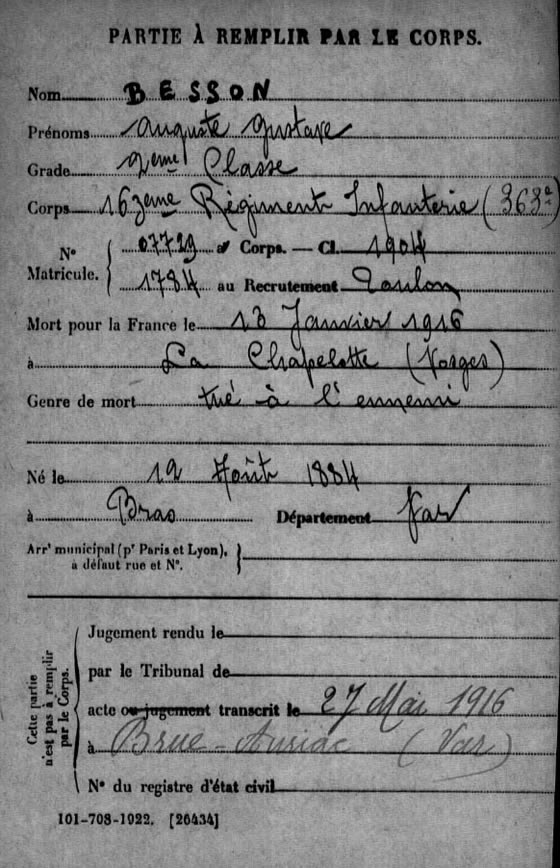 PARTIE À REMPLIR PAR LE CORPS.
Nom BESSON
Prénoms Auguste Gustave
Grade 2eme Classe
Corps 163eme Régiment Infanterie (363e)
N° Matricule. { 07729 au Corps. — Cl. 1904
1784 au Recrutement Toulon
Mort pour la France le 13 Janvier 1916
à La Chapelotte (Vosges)
Genre de mort tué à l'ennemi
Né le 12 Août 1884
à Bras Département Var
Arrt municipal (pr Paris et Lyon), à défaut rue et N°. }
Cette partie n'est pas à remplir par le Corps.
Jugement rendu le
par le Tribunal de
acte ou jugement transcrit le 27 Mai 1916
à Brue-Auriac (Var)
N° du registre d'état civil
101-708-1922. [26434]